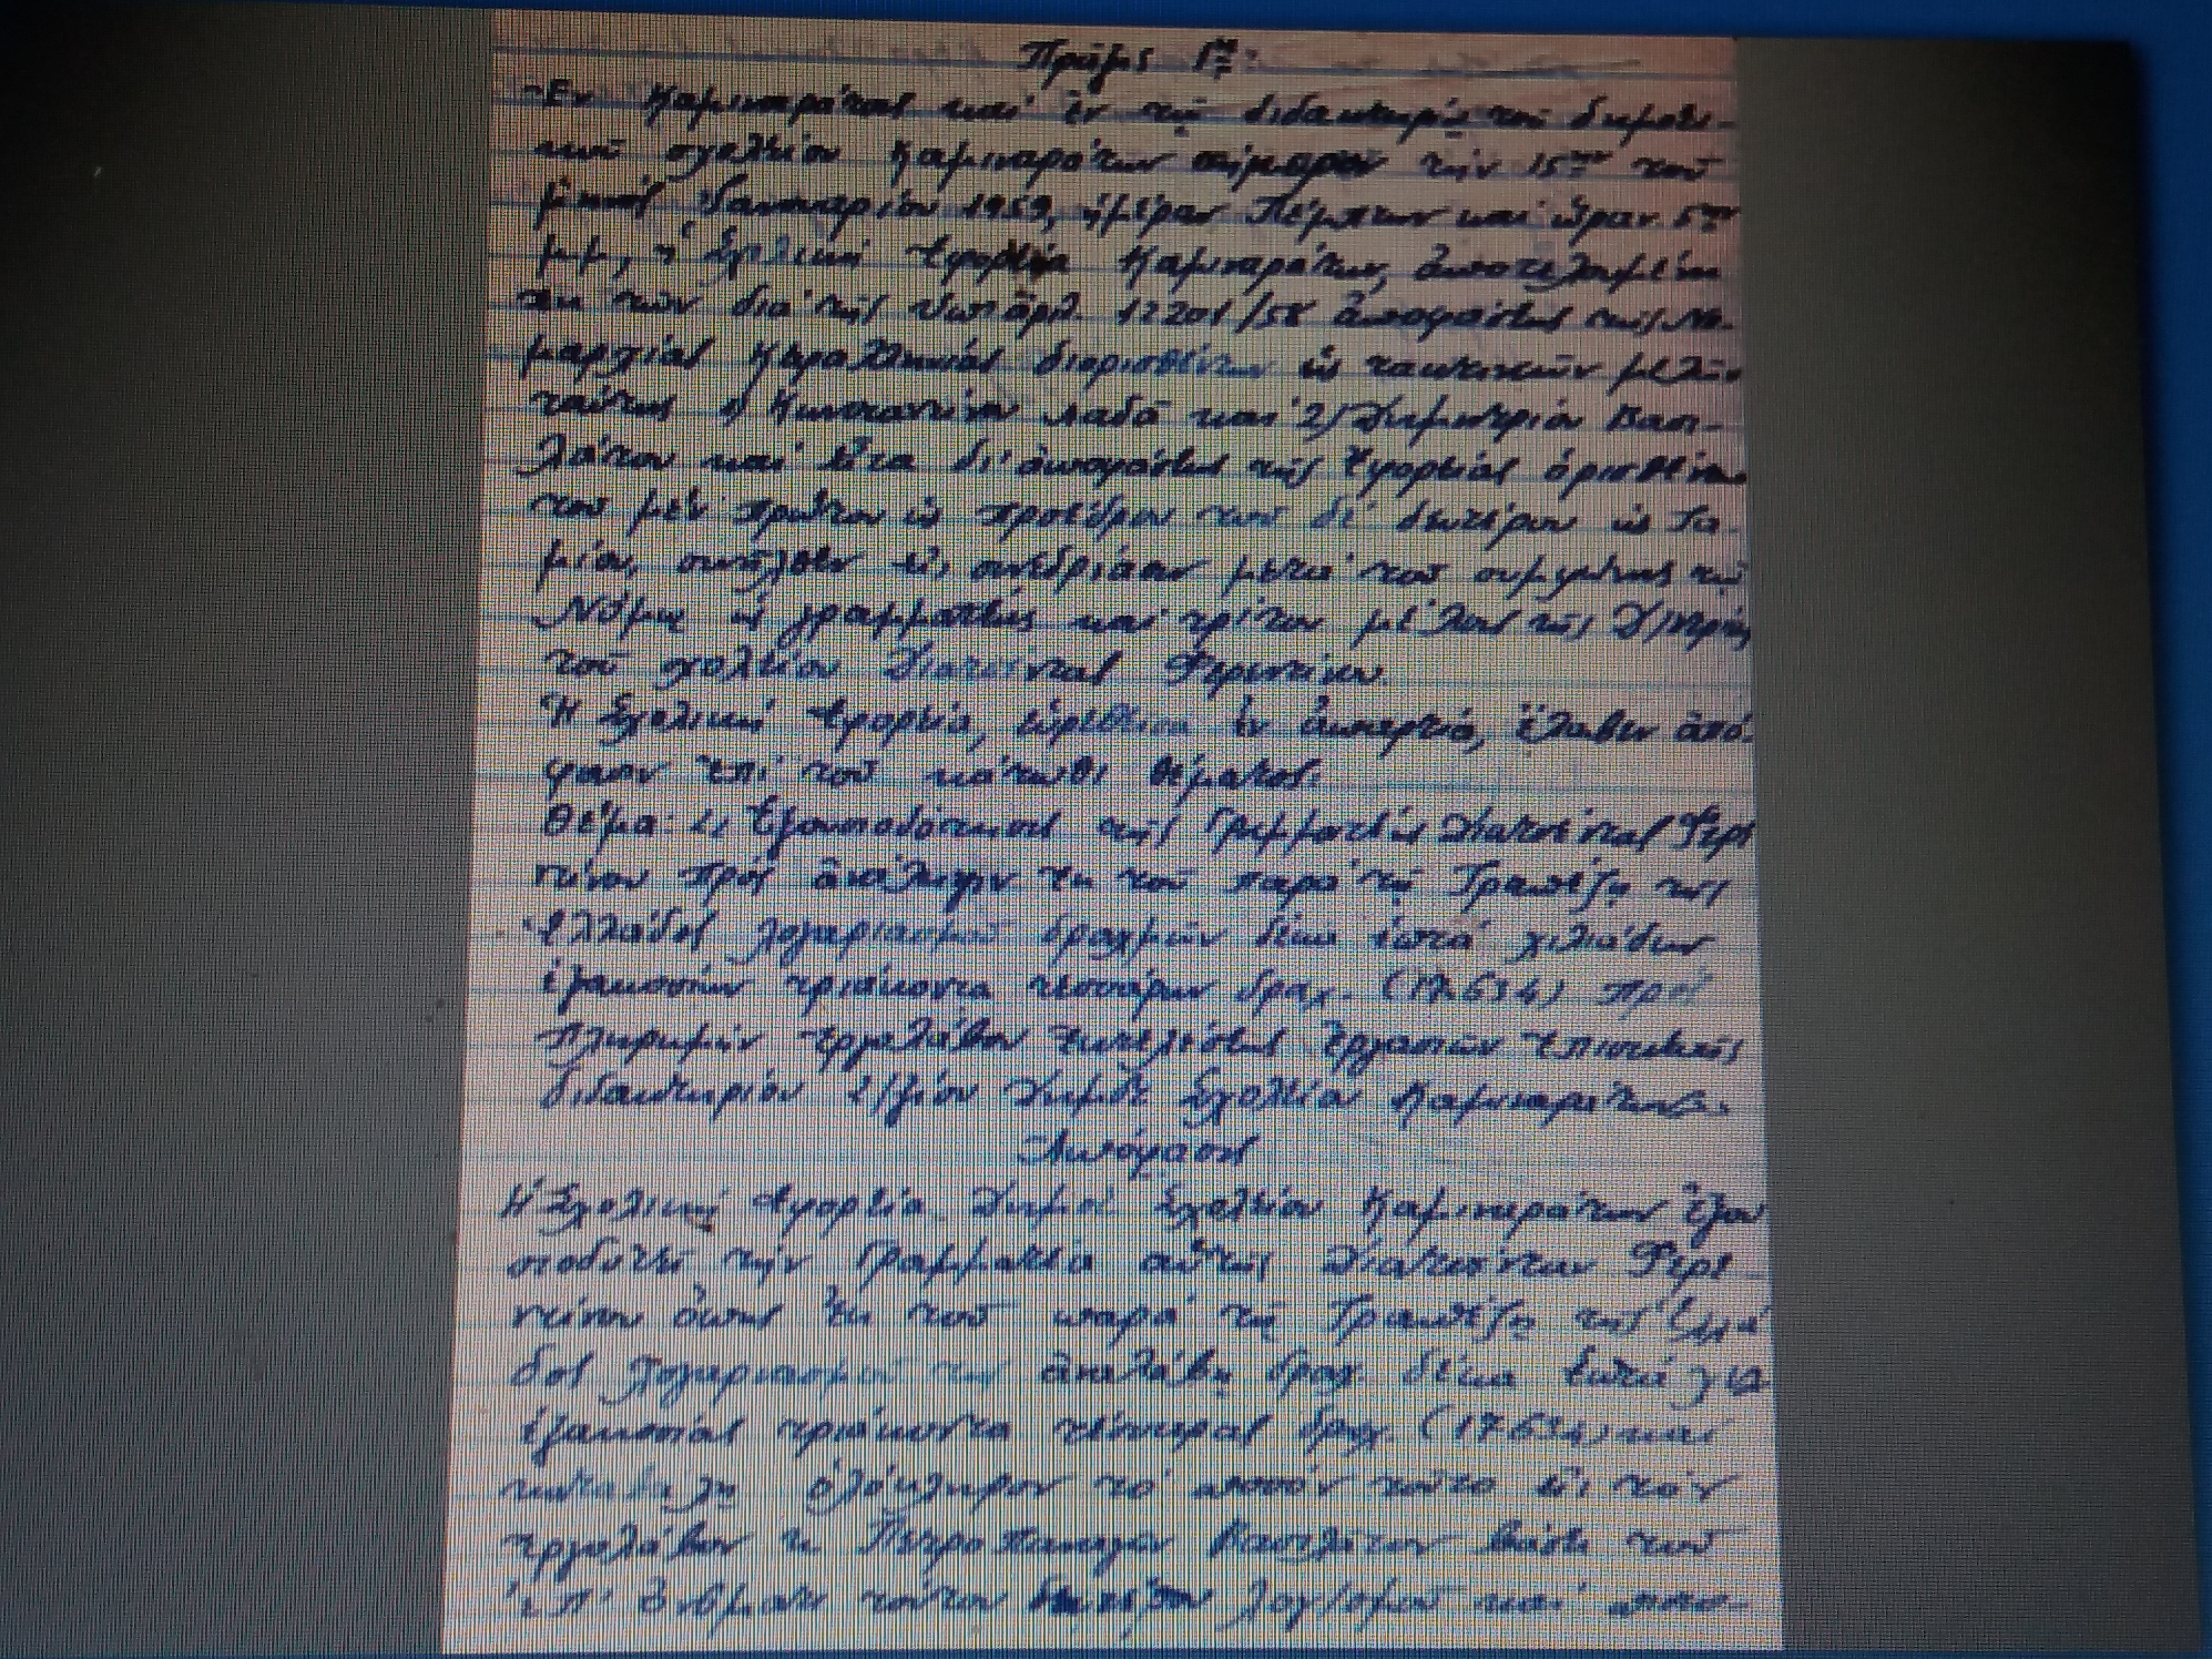 Πρᾶξις 1η:
Ἐν Καμιναράτοις καί ἐν τῷ διδακτηρίῳ τοῦ δημοτι-
κοῦ σχολείου Καμιναράτων σήμερον τήν 15ην τοῦ
μηνός Ἰανουαρίου 1959, ἡμέραν Πέμπτην καί ὥραν 5ην
μμ, ἡ Σχολική Ἐφορεία Καμιναράτων, ἀποτελουμένη
ἐκ τῶν διά τῆς ὑπ' ἀρι. 17201/58 ἀποφάσεως τῆς Νο-
μαρχίας Κεφαλληνίας διορισθέντων ὡς τακτικῶν μελῶν
ταύτης 1/ Κωνσταντίνου Λαδᾶ καί 2/ Δημητρίου Βασι-
λάτου καί εἶτα δι' ἀποφάσεως τῆς Ἐφορείας ὁρισθέντων
τοῦ μέν πρώτου ὡς προέδρου τοῦ δέ δευτέρου ὡς Τα-
μίου, συνῆλθεν εἰς συνεδρίασιν μετά τοῦ συμφώνως τῷ
Νόμῳ ὡς γραμματέως καί τρίτου μέλους τῆς Δ/ντρίας
τοῦ σχολείου Φερεντίνου
Ἡ Σχολική Ἐφορεία, εὑρεθεῖσα ἐν ἀπαρτίᾳ, ἔλαβεν ἀπό-
φασιν ἐπί τοῦ κάτωθι θέματος:
Θέμα: 1, Ἐξουσιοδότησις τῆς Γραμματέως Φερε
ντίνου πρός ἀνάληψιν ἐκ τοῦ παρά τῇ Τραπέζῃ τῆς
Ἑλλάδος λογαριασμοῦ δραχμῶν δέκα ἑπτά χιλιάδων
ἑξακοσίων τριάκοντα τεσσάρων δραχ. (17.634) πρός
πληρωμήν ἐργολάβου ἐκτελέσεως ἐργασιῶν ἐπισκευῆς
διδακτηρίου 2/ξίου Δημοτ Σχολείου Καμιναράτων.
Ἀπόφασις
Ἡ Σχολική Ἐφορεία Δημοτ Σχολείου Καμιναράτων ἐξου
σιοδοτεῖ τήν Γραμματέα αὐτῆς Φερε-
ντίνου ὅπως ἐκ τοῦ παρά τῇ Τραπέζῃ τῆς Ἑλλά
δος λογαριασμοῦ της ἀναλάβῃ δραχ. δέκα ἑπτά χιλ.
ἑξακοσίας τριάκοντα τέσσαρας δραχ. (17.634) καί
καταβάλῃ ὁλόκληρον τό ποσόν τοῦτο εἰς τόν
ἐργολάβον κ. Βασιλάτον βάσει τοῦ
ἐπ' ὀνόματι τούτου λογ/σμοῦ καί